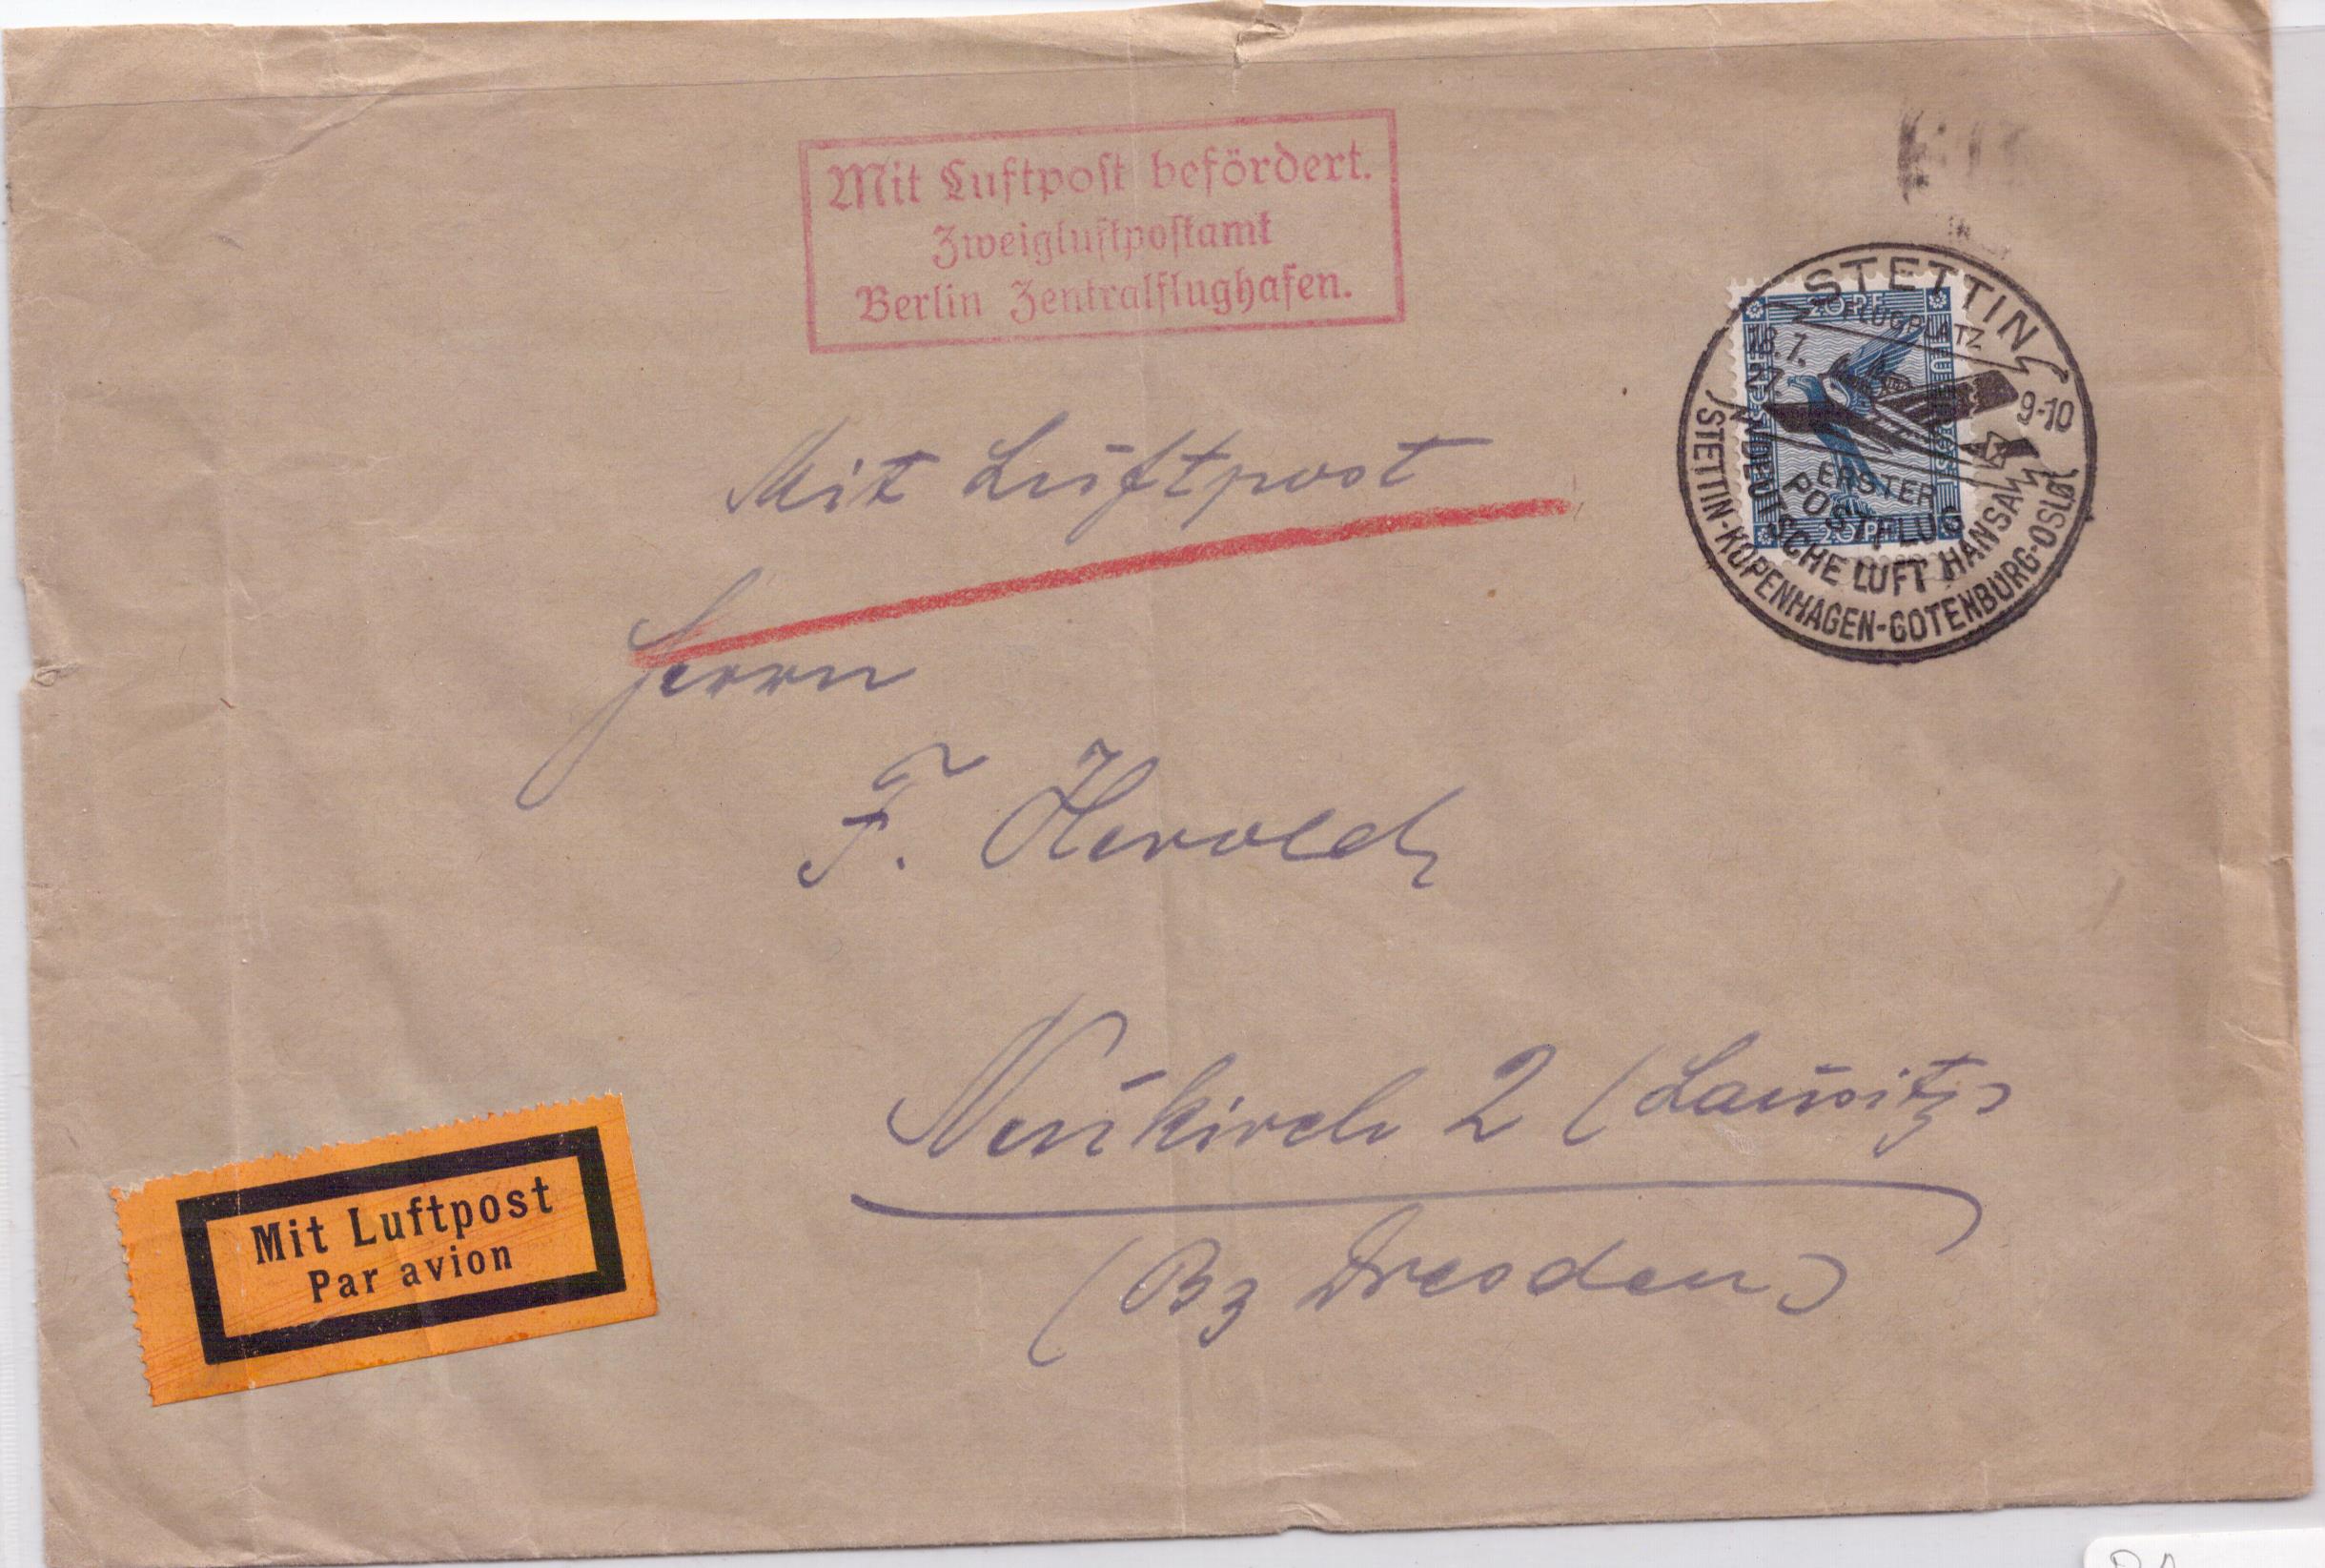 Mit Luftpost befördert.
Zweigluftpostamt
Berlin Zentralflughafen.
STETTIN
FLUGPLATZ
18.7.
27.
9-10
ERSTER
POSTFLUG
DEUTSCHE LUFT HANSA
STETTIN-KOPENHAGEN-GOTENBURG-OSLO
20 PF
20 PF
Mit Luftpost
Herrn
F. Herold
Neukirch 2 (Lausitz)
(Bz Dresden)
Mit Luftpost
Par avion